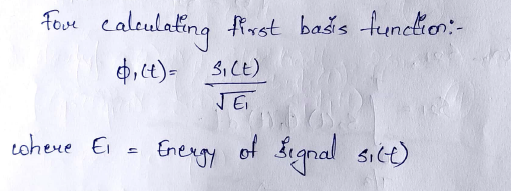 For calculating first basis function:-
ϕ₁(t) = s₁(t) / √E₁
where E₁ = Energy of signal s₁(t)